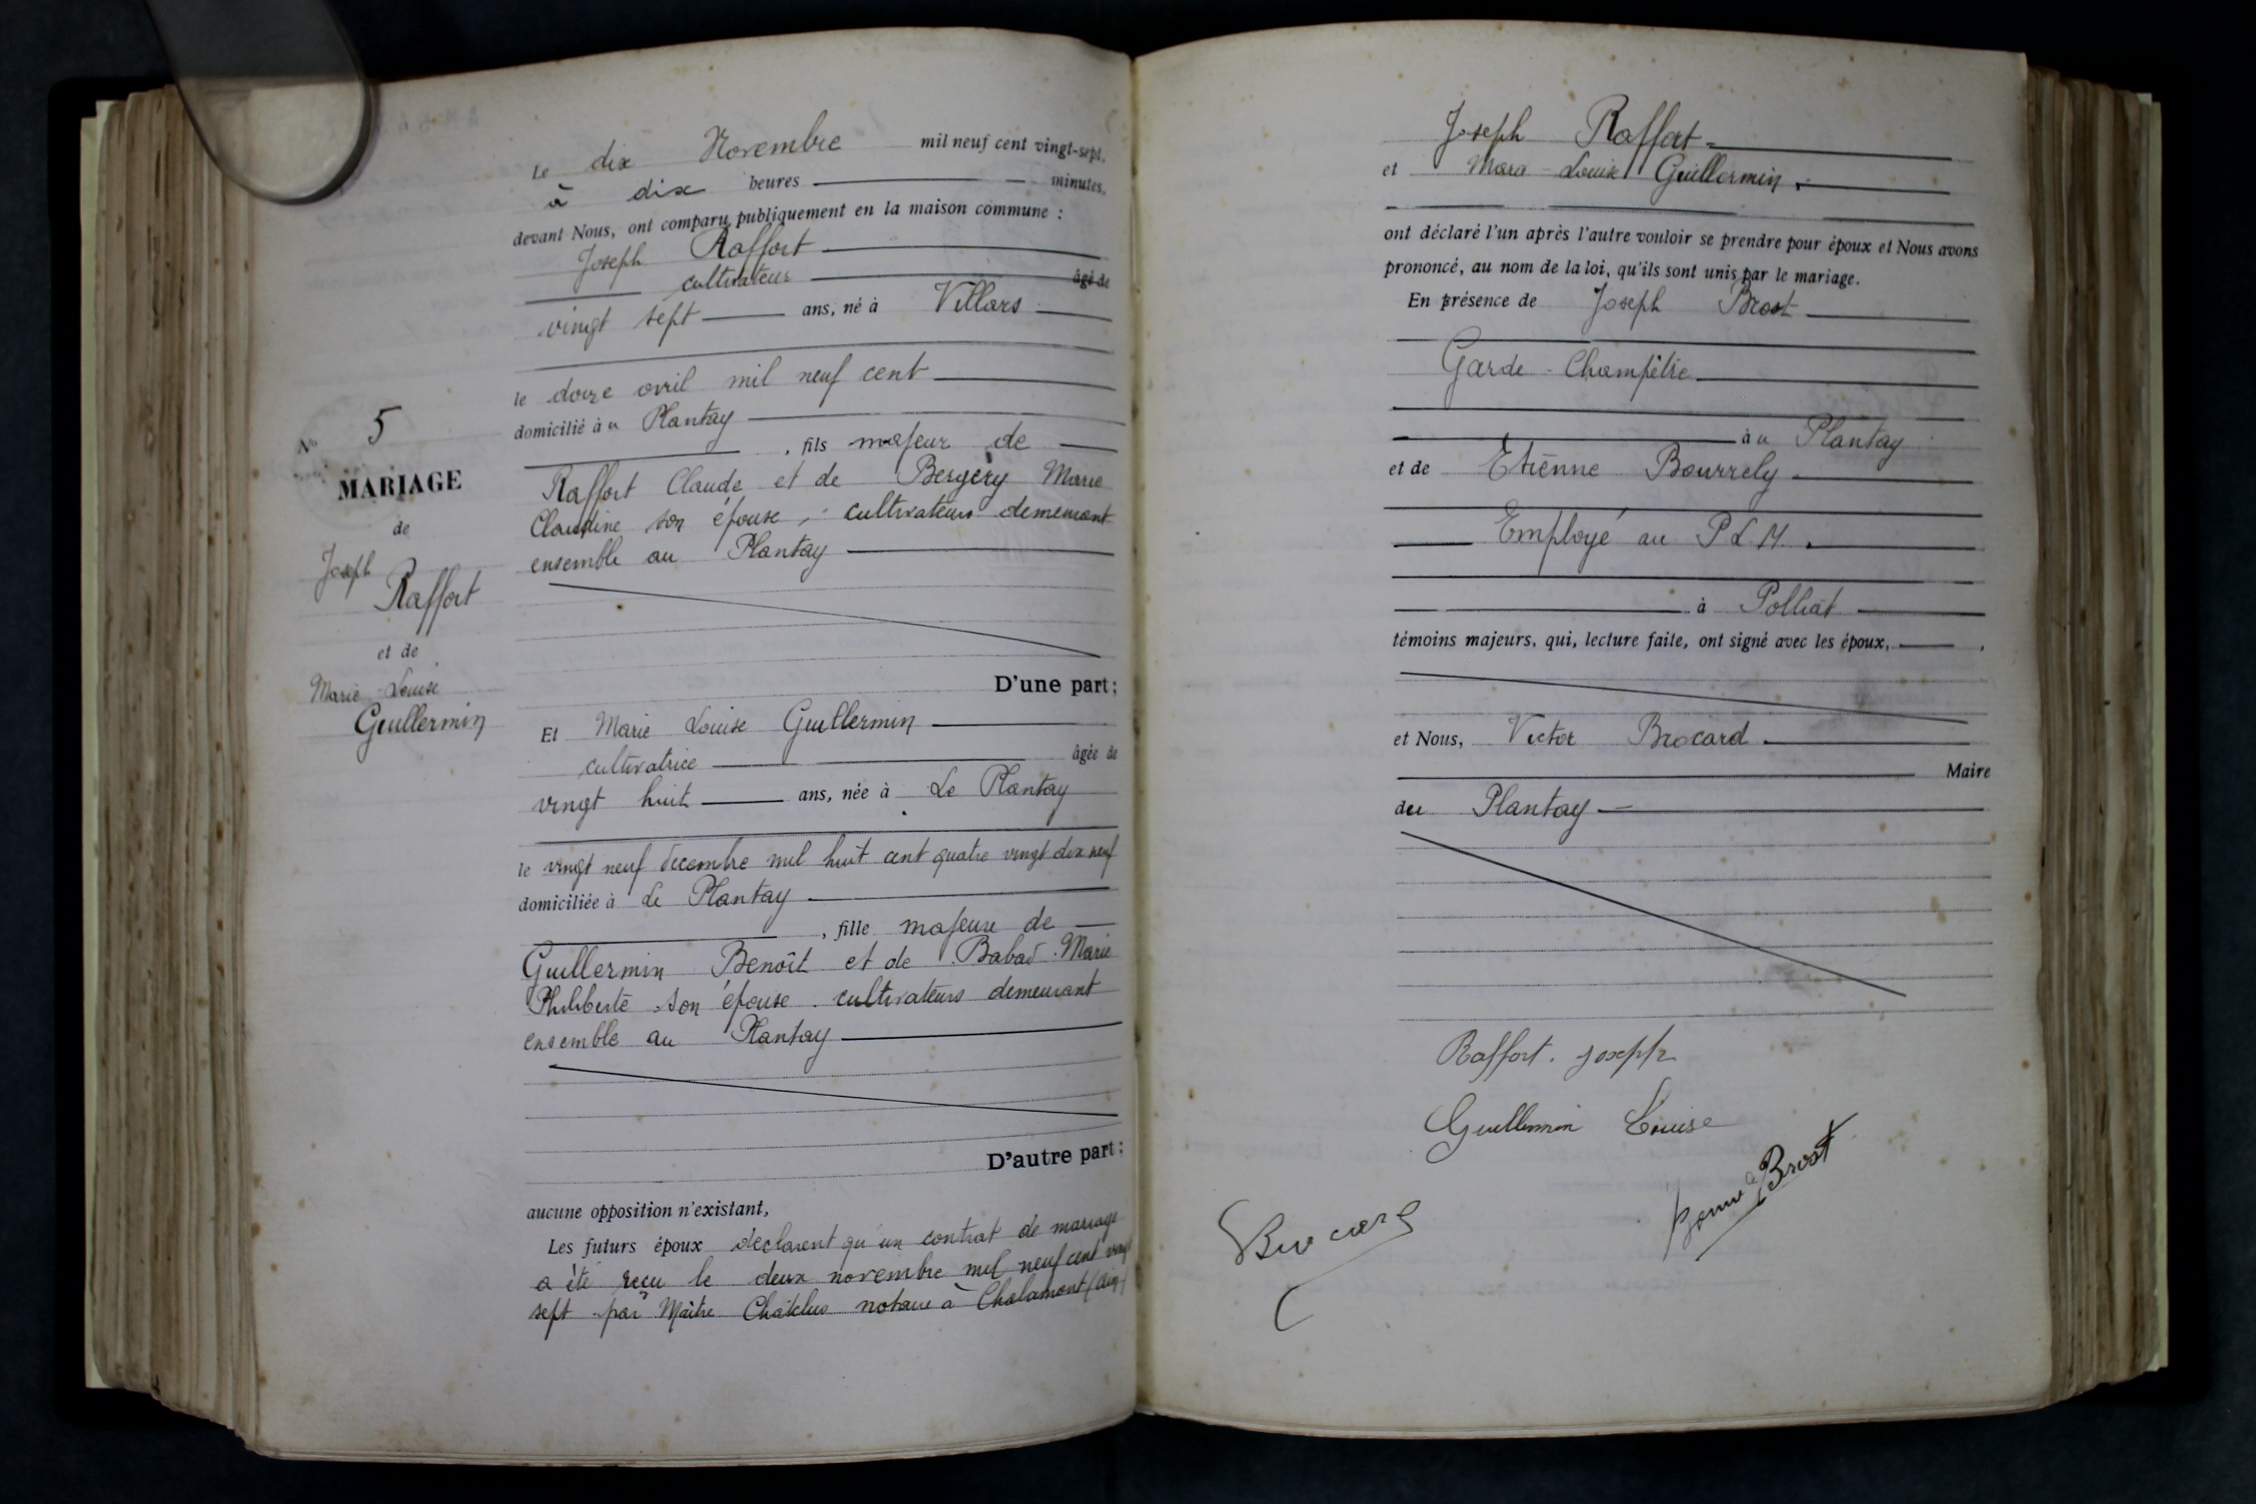 Le dix Novembre mil neuf cent vingt-sept,
à dix heures minutes,
devant Nous, ont comparu publiquement en la maison commune :
Joseph Raffort
cultivateur âgé de
vingt sept ans, né à Villars
le douze avril mil neuf cent
domicilié à u Plantay
, fils majeur de
Raffort Claude et de Bergery Marie
Claudine son épouse, cultivateurs demeurant
ensemble au Plantay
N° 5
MARIAGE
de
Joseph
Raffort
et de
Marie-Louise
Guillermin
D'une part ;
Et Marie Louise Guillermin
cultivatrice âgée de
vingt huit ans, née à Le Plantay
le vingt neuf decembre mil huit cent quatre vingt dix neuf
domiciliée à Le Plantay
, fille majeure de
Guillermin Benoît et de Babad Marie
Philiberte son épouse cultivateurs demeurant
ensemble au Plantay
D'autre part ;
aucune opposition n'existant,
Les futurs époux déclarent qu'un contrat de mariage
a été reçu le deux novembre mil neuf cent vingt
sept par Maître Châtelus notaire à Chalamont (Ain)
Joseph Raffort
et Marie Louise Guillermin
ont déclaré l'un après l'autre vouloir se prendre pour époux et Nous avons
prononcé, au nom de la loi, qu'ils sont unis par le mariage.
En présence de Joseph Brost
Garde-Champêtre
à u Plantay
et de Etienne Bourrely
Employé au P L M.
à Polliat
témoins majeurs, qui, lecture faite, ont signé avec les époux,
et Nous, Victor Brocard
Maire
du Plantay
Raffort. joseph
Guillermin Louise
Brost
Brocard